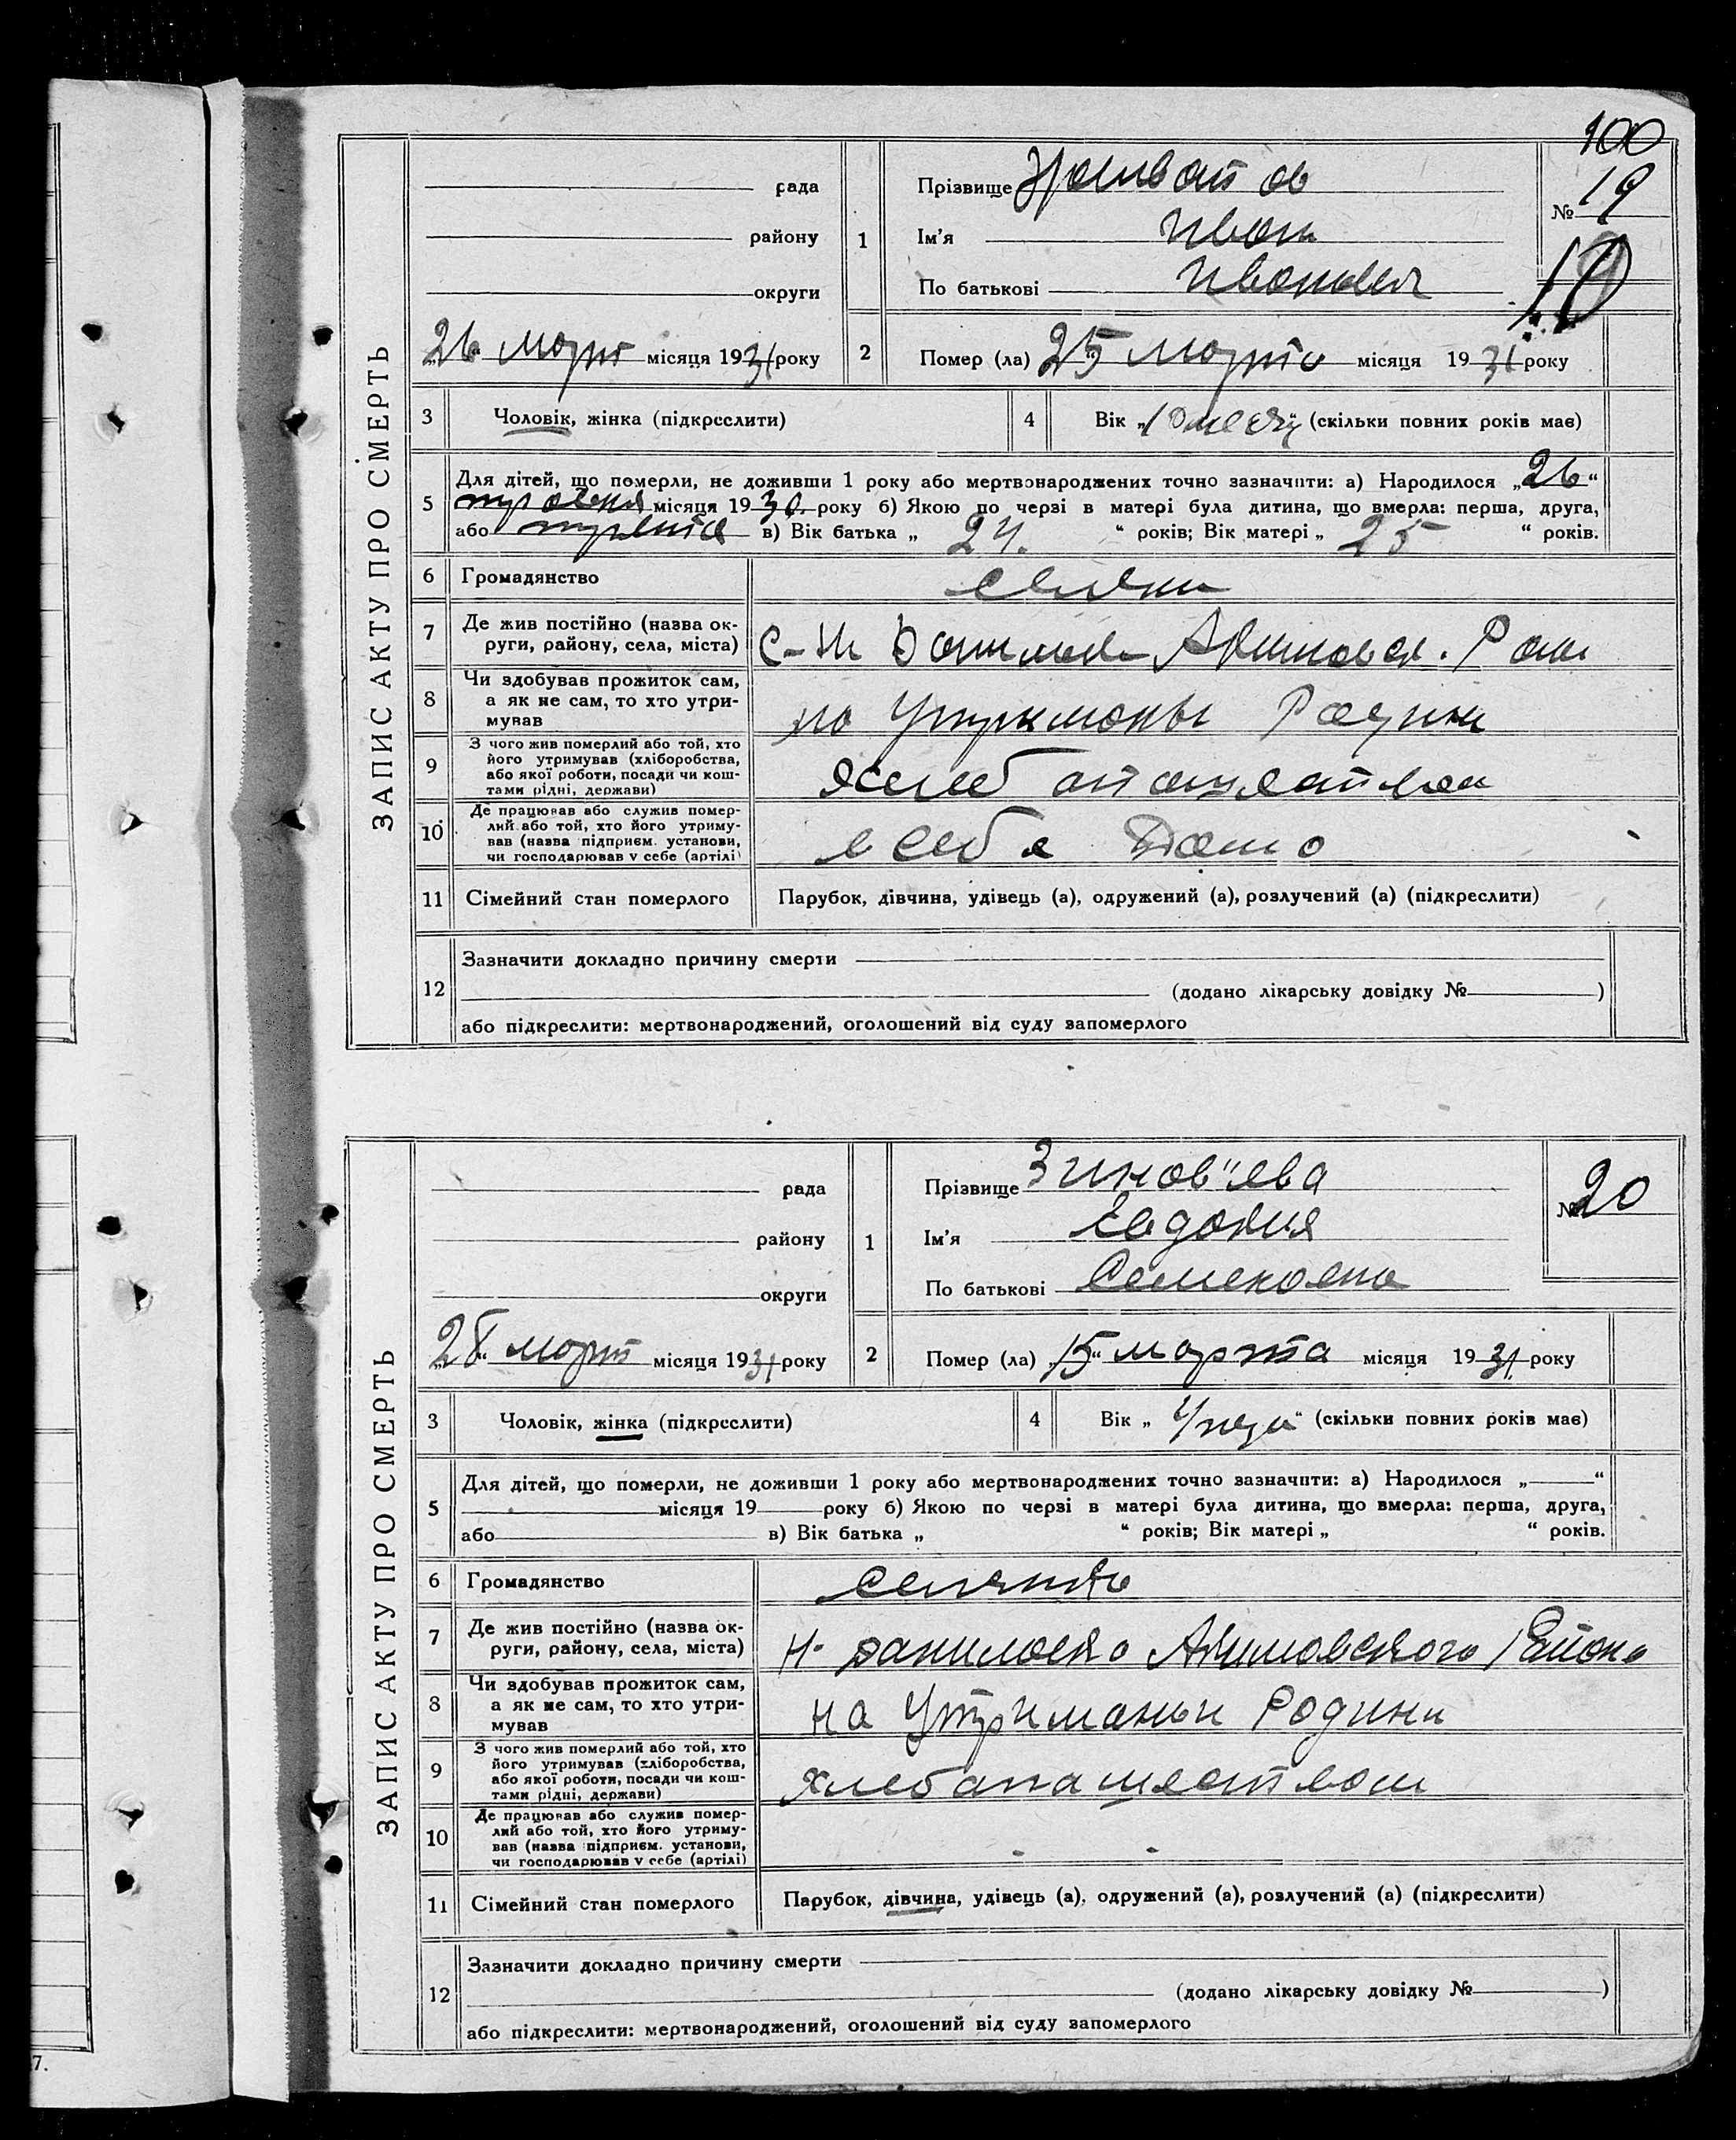 100
ЗАПИС АКТУ ПРО СМЕРТЬ
рада
району
округи
"26" март місяця 1931 року
1
Прізвище
Ім'я Иван
По батькові Иванович
№ 19
10
2
Помер (ла) "25" марта місяця 1931 року
3
Чоловік, жінка (підкреслити)
4
Вік „10 " (скільки повних років має)
5
Для дітей, що померли, не доживши 1 року або мертвонароджених точно зазначити: а) Народилося „26"
травня місяця 1930 року б) Якою по черзі в матері була дитина, що вмерла: перша, друга,
або третя в) Вік батька „ 24. " років; Вік матері „ 25 " років.
6
Громадянство
7
Де жив постійно (назва ок-
руги, району, села, міста)
8
Чи здобував прожиток сам,
а як не сам, то хто утри-
мував
на
9
З чого жив померлий або той, хто
його утримував (хліборобства,
або якої роботи, посади чи кош-
тами рідні, держави)
10
Де працював або служив помер-
лий або той, хто його утриму-
вав (назва підприєм. установи,
чи господарював у себе (артілі)
в себя дома
11
Сімейний стан померлого
Парубок, дівчина, удівець (а), одружений (а), розлучений (а) (підкреслити)
12
Зазначити докладно причину смерти
(додано лікарську довідку № )
або підкреслити: мертвонароджений, оголошений від суду запомерлого
ЗАПИС АКТУ ПРО СМЕРТЬ
рада
району
округи
"28" март місяця 1931 року
1
Прізвище Зинов"ева
Ім'я Евдокия
По батькові Семеновна
№ 20
2
Помер (ла) „15" марта місяця 1931 року
3
Чоловік, жінка (підкреслити)
4
Вік „ 4 года " (скільки повних років має)
5
Для дітей, що померли, не доживши 1 року або мертвонароджених точно зазначити: а) Народилося „ "
місяця 19 року б) Якою по черзі в матері була дитина, що вмерла: перша, друга,
або в) Вік батька „ " років; Вік матері „ " років.
6
Громадянство
7
Де жив постійно (назва ок-
руги, району, села, міста)
Н. Даниловка Акимовского Района
8
Чи здобував прожиток сам,
а як не сам, то хто утри-
мував
на Утриманьи Родини
9
З чого жив померлий або той, хто
його утримував (хліборобства,
або якої роботи, посади чи кош-
тами рідні, держави)
10
Де працював або служив помер-
лий або той, хто його утриму-
вав (назва підприєм. установи,
чи господарював у себе (артілі)
11
Сімейний стан померлого
Парубок, дівчина, удівець (а), одружений (а), розлучений (а) (підкреслити)
12
Зазначити докладно причину смерти
(додано лікарську довідку № )
або підкреслити: мертвонароджений, оголошений від суду запомерлого
7.